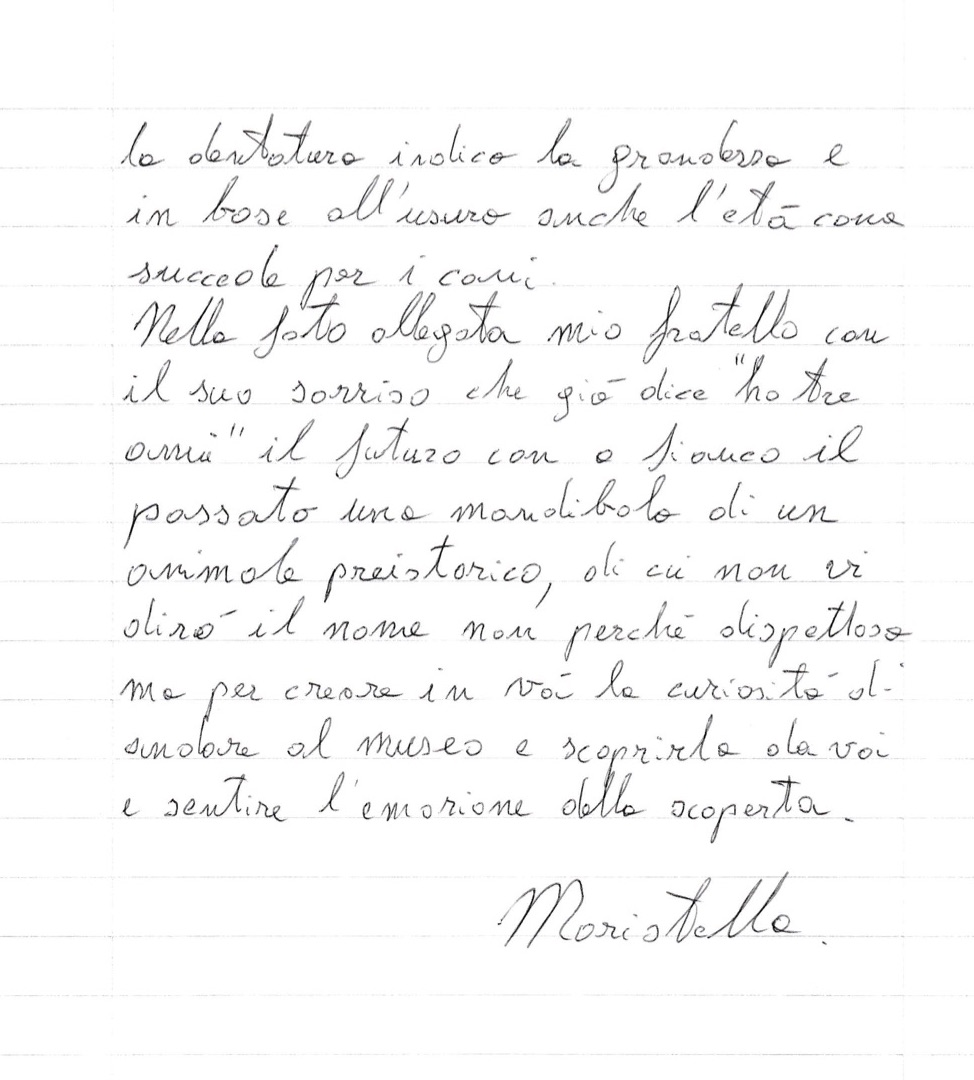 la dentatura indica la grandezza e
in base all'usura anche l'età come
succede per i cani.
Nella foto allegata mio fratello con
il suo sorriso che già dice "ho tre
anni" il futuro con a fianco il
passato una mandibola di un
animale preistorico, di cui non vi
dirò il nome non perchè dispettosa
ma per creare in voi la curiosità di
andare al museo e scoprirla da voi
e sentire l'emozione della scoperta.
Maristella.